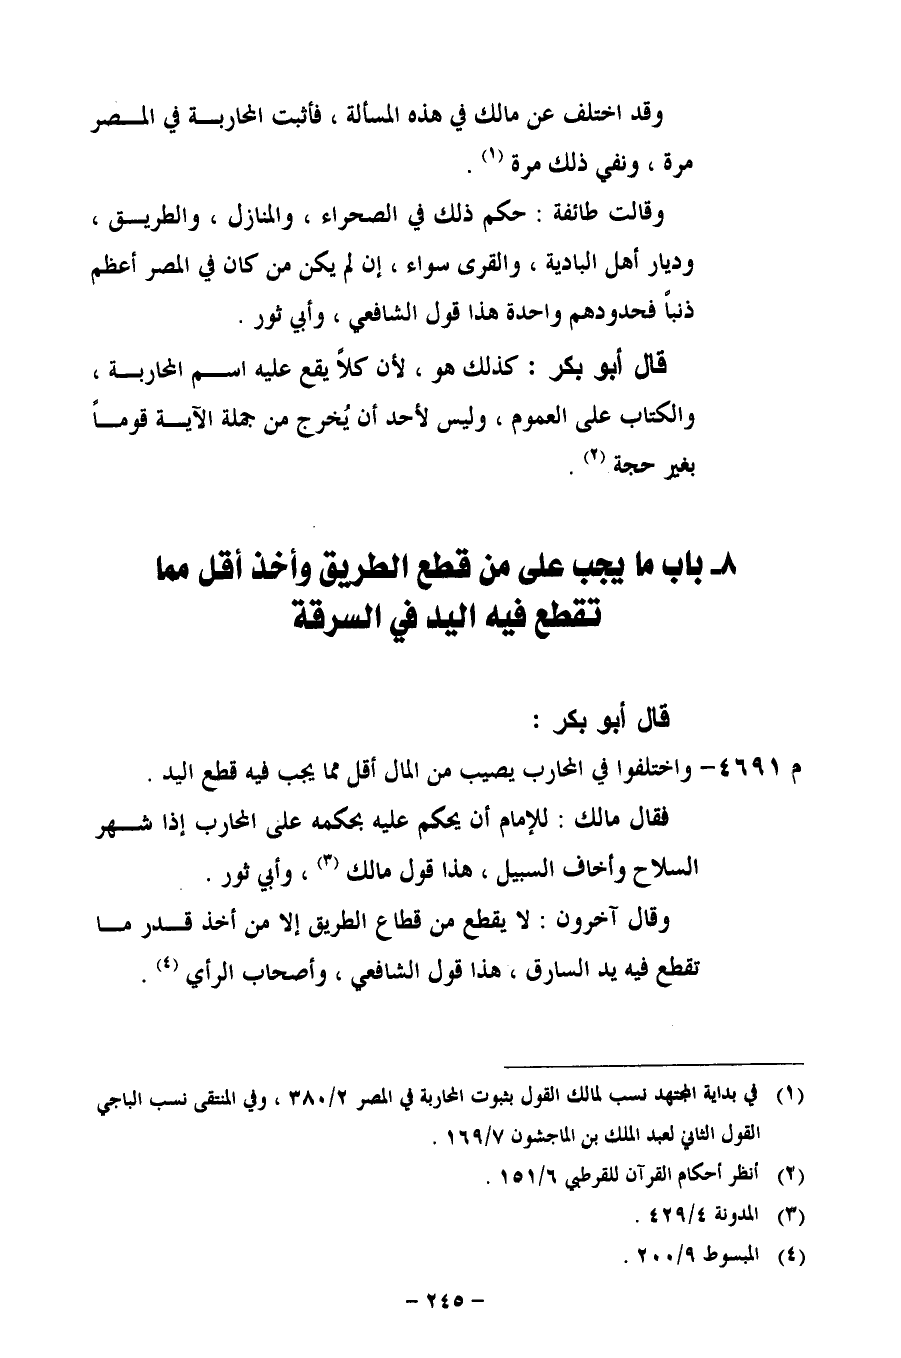 وقد اختلف عن مالك في هذه المسألة ، فأثبت المحاربـــة في المـــصر
مرة ، ونفي ذلك مرة (١) .
وقالت طائفة : حكم ذلك في الصحراء ، والمنازل ، والطريـــق ،
وديار أهل البادية ، والقرى سواء ، إن لم يكن من كان في المصر أعظم
ذنباً فحدودهم واحدة هذا قول الشافعي ، وأبي ثور .
قال أبو بكر : كذلك هو ، لأن كلاً يقع عليه اســـم المحاربـــة ،
والكتاب على العموم ، وليس لأحد أن يُخرج من جملة الآيـــة قومـــاً
بغير حجة (٢) .
٨ـ باب ما يجب على من قطع الطريق وأخذ أقل مما
تقطع فيه اليد في السرقة
قال أبو بكر :
م ٤٦٩١– واختلفوا في المحارب يصيب من المال أقل مما يجب فيه قطع اليد .
فقال مالك : للإمام أن يحكم عليه بحكمه على المحارب إذا شـــهر
السلاح وأخاف السبيل ، هذا قول مالك (٣) ، وأبي ثور .
وقال آخرون : لا يقطع من قطاع الطريق إلا من أخذ قـــدر مـــا
تقطع فيه يد السارق ، هذا قول الشافعي ، وأصحاب الرأي (٤) .
(١) في بداية المجتهد نسب لمالك القول بثبوت المحاربة في المصر ٣٨٠/٢ ، وفي المنتقى نسب الباجي
القول الثاني لعبد الملك بن الماجشون ١٦٩/٧ .
(٢) أنظر أحكام القرآن للقرطبي ١٥١/٦ .
(٣) المدونة ٤٢٩/٤ .
(٤) المبسوط ٢٠٠/٩ .
– ٢٤٥ –